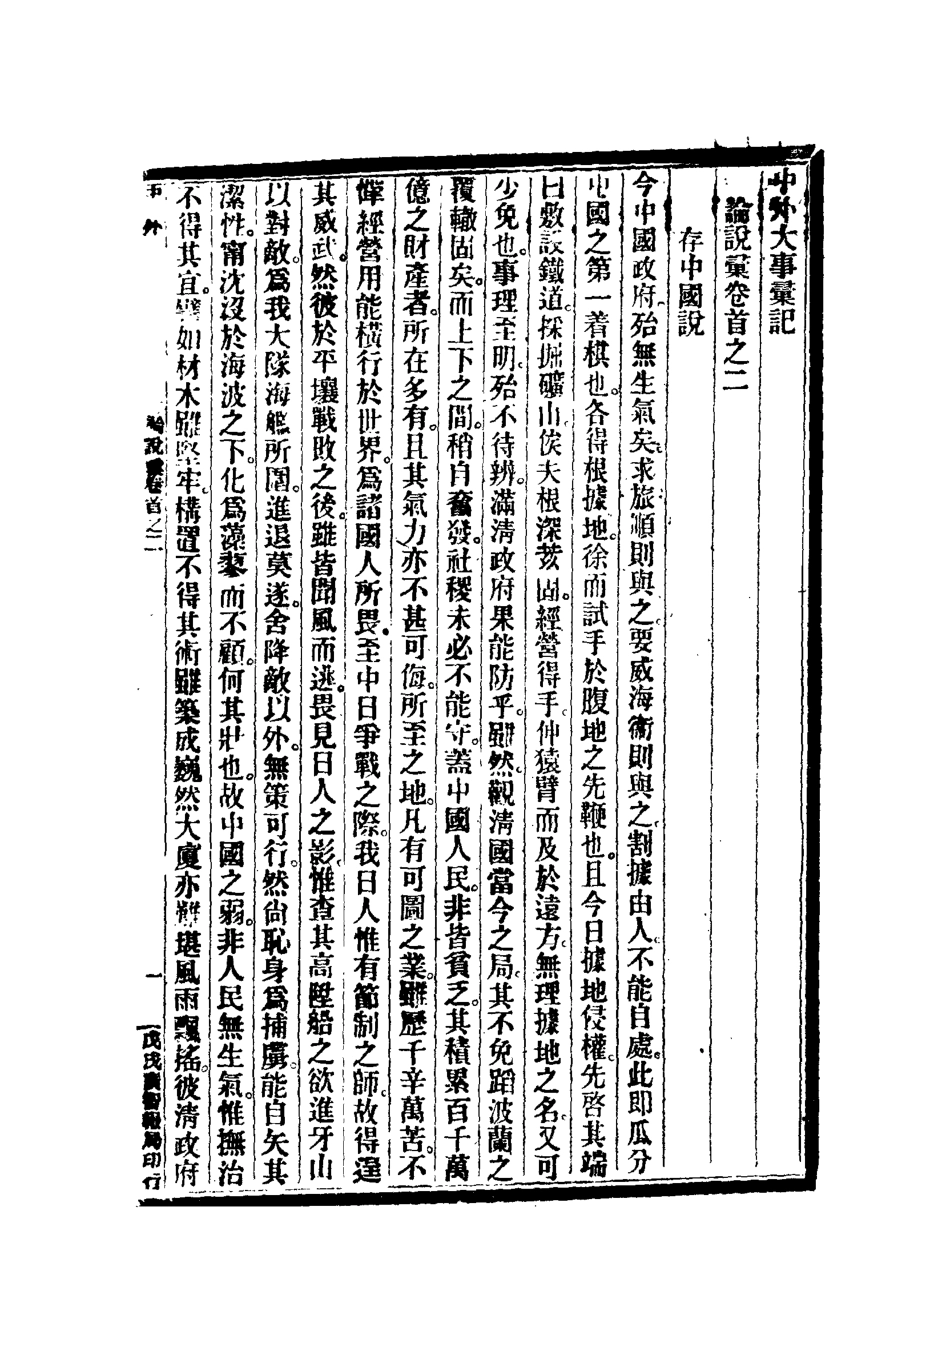 中外大事彙記
論說彙卷首之二
存中國說
今中國政府。殆無生氣矣。求旅順則與之。要威海衞則與之。割據由人。不能自處。此卽瓜分
中國之第一着棋也。各得根據地。徐而試手於腹地之先鞭也。且今日據地侵權。先啓其端
曰敷設鐵道。採掘礦山。俟夫根深荄固。經營得手。伸猿臂而及於遠方。無理據地之名。又可
少免也。事理至明。殆不待辨。滿淸政府果能防乎。雖然。觀淸國當今之局。其不免蹈波蘭之
覆轍固矣。而上下之間。稍自奮發。社稷未必不能守。蓋中國人民。非皆貧乏。其積累百千萬
億之財產者。所在多有。且其氣力亦不甚可侮。所至之地。凡有可圖之業。雖歷千辛萬苦。不
憚經營。用能橫行於世界。爲諸國人所畏。至中日爭戰之際。我日人惟有節制之師。故得逞
其威武。然彼於平壤戰敗之後。雖皆聞風而逃。畏見日人之影。惟查其高陞船之欲進牙山
以對敵。爲我大隊海艦所圍。進退莫遂。舍降敵以外。無策可行。然尙恥身爲捕虜。能自矢其
潔性。甯沈沒於海波之下。化爲藻藜而不顧。何其壯也。故中國之弱。非人民無生氣。惟撫治
不得其宜。譬如材木雖堅牢。構置不得其術。雖築成巍然大廈。亦難堪風雨飄搖。彼淸政府
中外
論說彙卷首之二
一
戊戌廣智報局印行